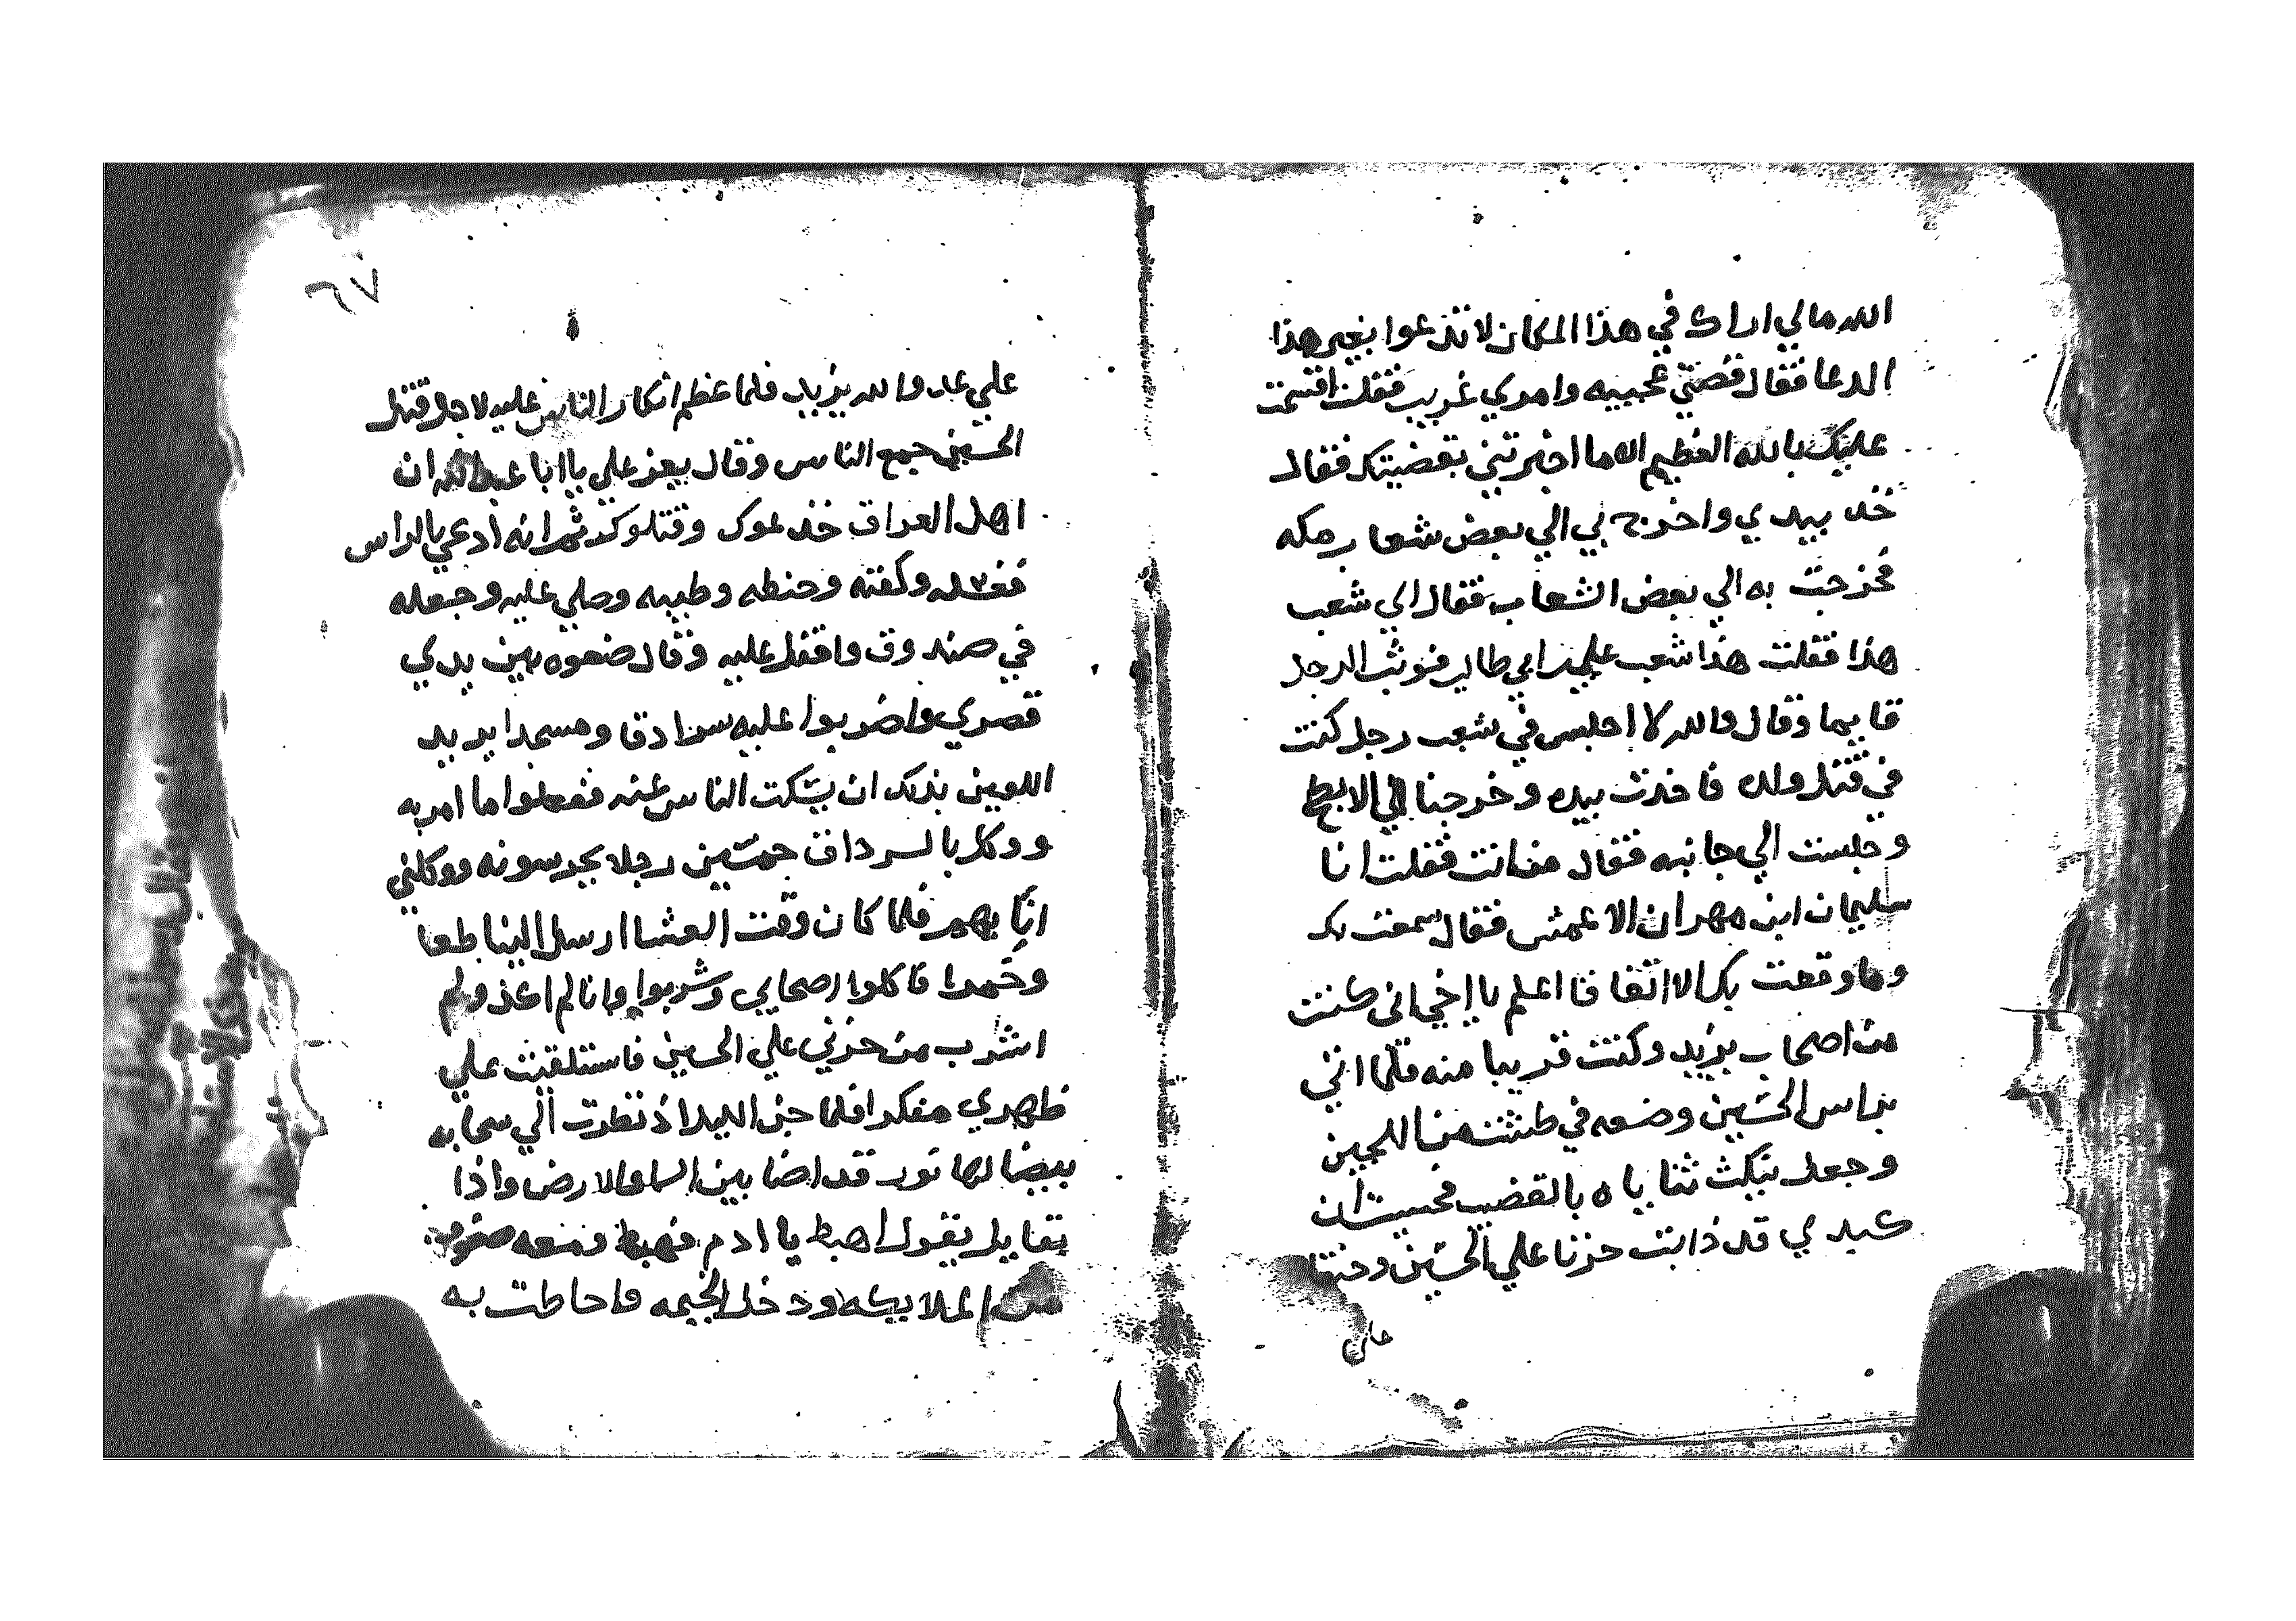 الله مالي اراك في هذا المكان لا تدعوا بغير هذا
الدعا فقال قصتي عجيبه وامري غريب فقلت اقسمت
عليك بالله العظيم الا ما اخبرتني بقضيتك فقال
خذ بيدي واخرج بي الي بعض شعاب مكه
فخرجت به الي بعض الشعاب فقال اي شعب
هذا فقلت هذا شعب علي ابي طالب فوثب الرجل
قايما وقال والله لا اجلس في شعب رجل كنت
في قتل ولده فاخذت بيده وخرجنا الي الابطح
وجلست الي جانبه فقال من انت فقلت انا
سليمان ابن مهران الاعمش فقال سمعت بك
وما وقعت بك الا اتفاقا اعلم يا اخي اني كنت
من اصحاب يزيد وكنت قريبا منه فلما اتي
براس الحسين وضعه في طشت من اللجين
وجعل ينكث ثناياه بالقضيب فحسيت ان
كبدي قد ذابت حزنا علي الحسين وحنقا
علي
٦٧
علي عدو الله يزيد فلما عظم انكار الناس عليه لاجل قتل
الحسين جمع الناس وقال يعز علي يا ابا عبد الله ان
اهل العراق خدعوك وقتلوك ثم انه ادعي بالراس
فغسله وكفنه وحنطه وطيبه وصلي عليه وجعله
في صندوق واقفل عليه وقال ضعوه بين يدي
قصري واضربوا عليه سرادقا ومسجدا يريد
اللعين بذلك ان يسكت الناس عنه ففعلوا ما امر به
ووكل بالسرداق خمسين رجلا يحرسونه ووكلني
انا بهم فلما كان وقت العشا ارسل الينا طعا
وخمرا فاكلوا اصحابي وشربوا وانا لم اغذ ولم
اشرب من حزني علي الحسين فاستلقيت علي
ظهري مفكرا فلما جن الليل اذ نظرت الي سحابه
بيضا لها نور قد اضا بين السما والارض واذا
بقايل يقول اهبط يا ادم فهبط ومعه صفوف
من الملايكه ودخل الخيمه فاحاطت به